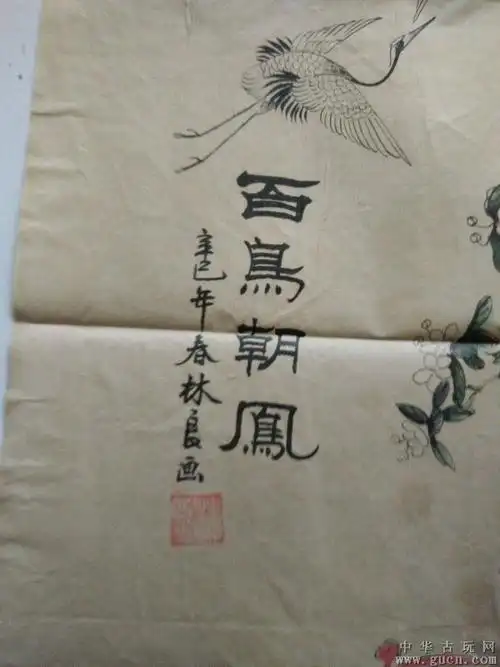 百鳥朝鳳
辛巳年春林良画
中华古玩网
www.gucn.com